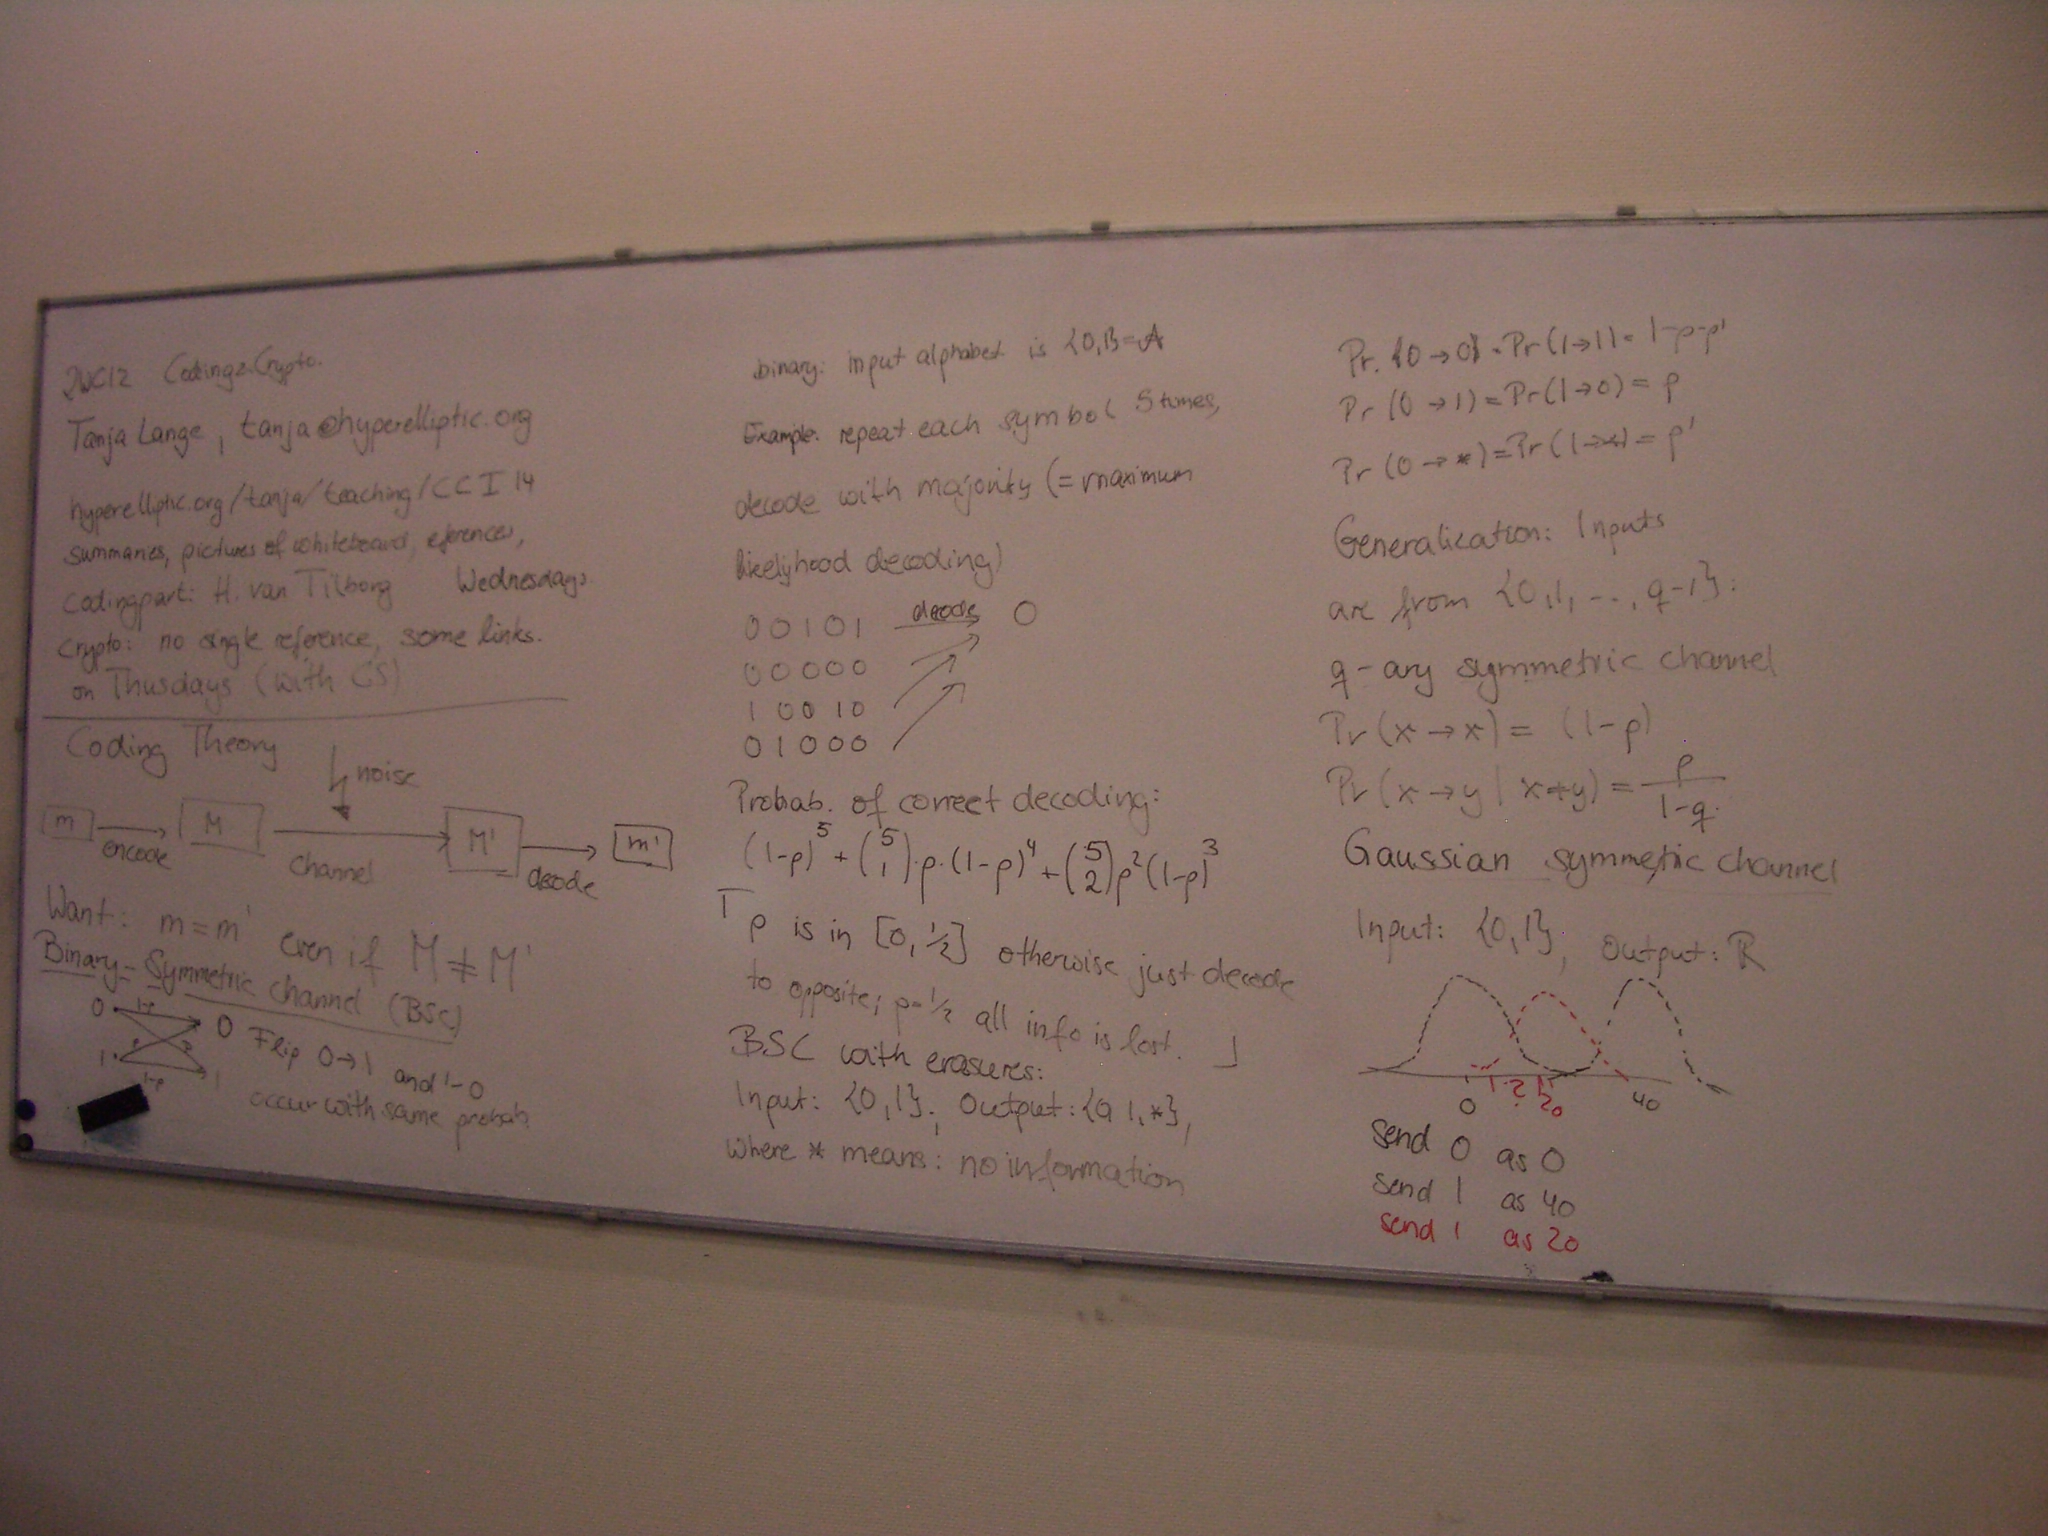 2WC12 Coding&Crypto.
Tanja Lange, tanja@hyperelliptic.org
hyperelliptic.org/tanja/teaching/CCI14
summaries, pictures of whiteboard, eferences,
Codingpart: H. van Tilborg Wednesdays
Crypto: no single reference, some links.
on Thusdays (with CS)
Coding Theory
noise
m encode M channel M' decode m'
Want: m=m' even if M≠M'
Binary-Symmetric channel (BSC)
0 1-p 0
p p
1 1-p 1
Flip 0→1 and 1-0
occur with same probab.
binary: input alphabet is {0,1}=A
Example: repeat each symbol 5 times,
decode with majority (= maximum
likelyhood decoding)
00101 decode 0
00000
10010
01000
Probab. of correct decoding:
(1-p)^5 + (5 1)·p·(1-p)^4 + (5 2)p^2(1-p)^3
p is in [0,1/2] otherwise just decode
to opposite; p=1/2 all info is lost.
BSC with erasures:
Input: {0,1}; Output: {0,1,*},
where * means: no information
Pr.{0→0}=Pr(1→1)=1-p-p'
Pr(0→1)=Pr(1→0)=p
Pr(0→*)=Pr(1→*)=p'
Generalization: Inputs
are from {0,1,...,q-1}:
q-ary symmetric channel
Pr(x→x)=(1-p)
Pr(x→y|x≠y)=p/(1-q)
Gaussian symmetric channel
Input: {0,1}, Output: ℝ
0 1 2 20 40
send 0 as 0
send 1 as 40
send 1 as 20